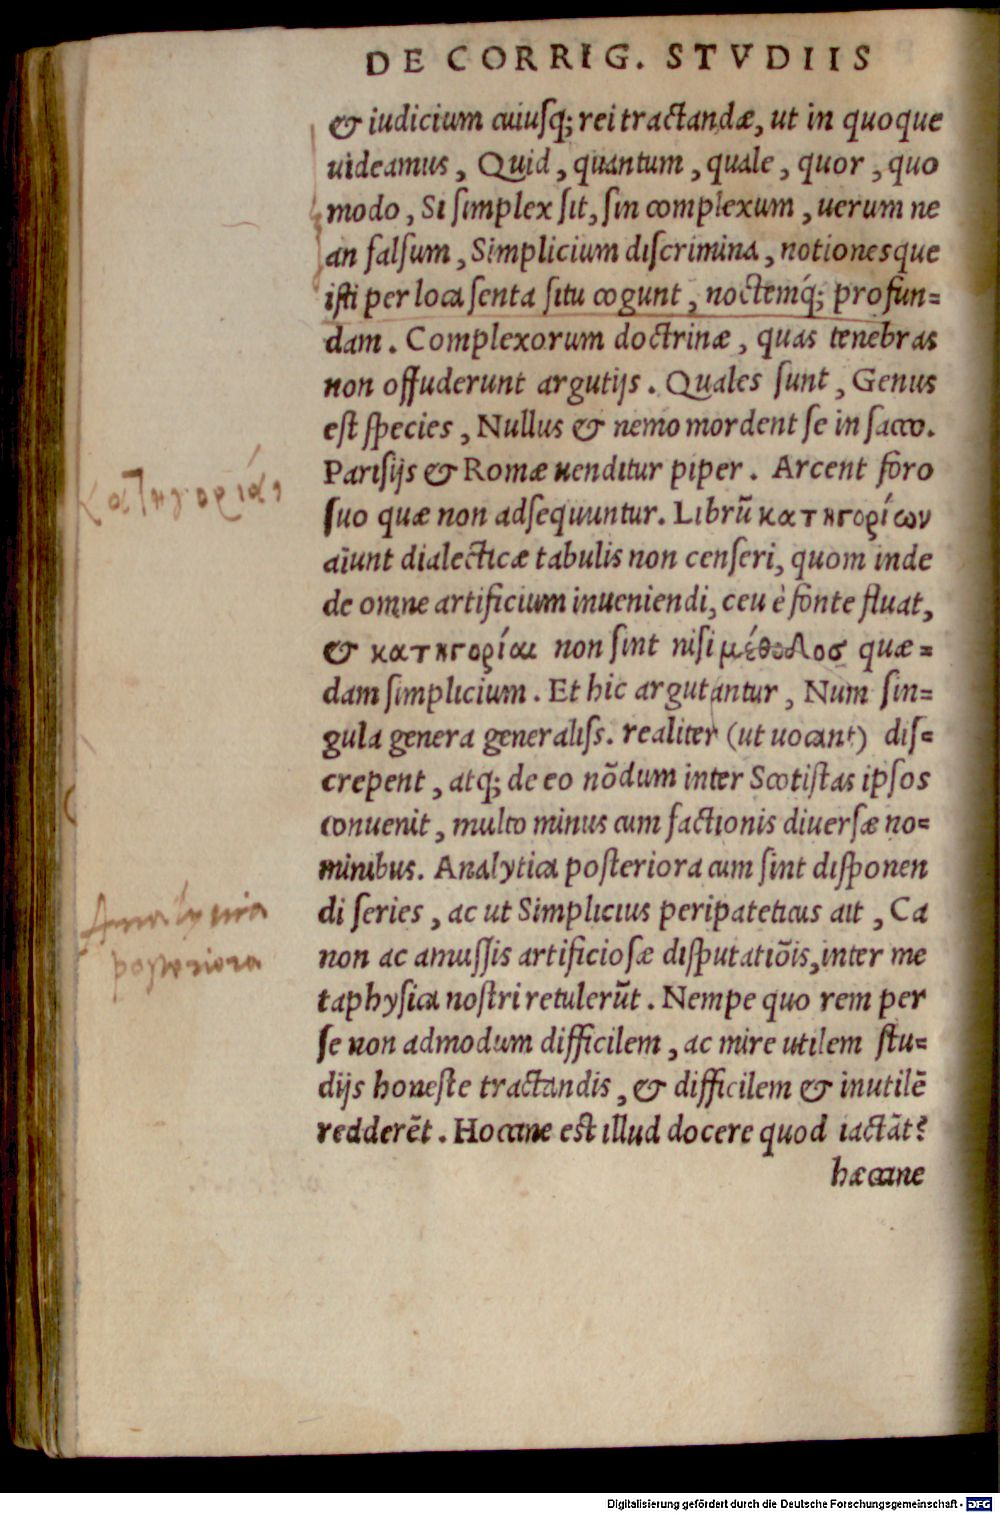 DE CORRIG. STVDIIS
& iudicium cuiusq; rei tractandæ, ut in quoque
uideamus, Quid, quantum, quale, quor, quo
modo, Si simplex sit, sin complexum, uerum ne
an falsum, Simplicium discrimina, notionesque
isti per loca senta situ cogunt, noctemq́; profun=
dam. Complexorum doctrinæ, quas tenebras
non offuderunt argutijs. Quales sunt, Genus
est species, Nullus & nemo mordent se in sacco.
Parisijs & Romæ uenditur piper. Arcent foro
κατηγορίαι
suo quæ non adsequuntur. Librũ κατηγορίων
aiunt dialecticæ tabulis non censeri, quom inde
de omne artificium inueniendi, ceu è fonte fluat,
& κατηγορίαι non sint nisi μέθοδος quæ=
dam simplicium. Et hic argutantur, Num sin=
gula genera generaliss. realiter (ut uocant) dis=
crepent, atq; de eo nõdum inter Scotistas ipsos
conuenit, multo minus cum factionis diuersæ no=
minibus. Analytica posteriora cum sint disponen
Analytica
di series, ac ut Simplicius peripateticus ait, Ca
non ac amussis artificiosæ disputatiõis, inter me
posteriora
taphysica nostri retulerũt. Nempe quo rem per
se non admodum difficilem, ac mire utilem stu=
dijs honeste tractandis, & difficilem & inutilẽ
redderẽt. Hoccine est illud docere quod iactãt?
hæccine
Digitalisierung gefördert durch die Deutsche Forschungsgemeinschaft - DFG